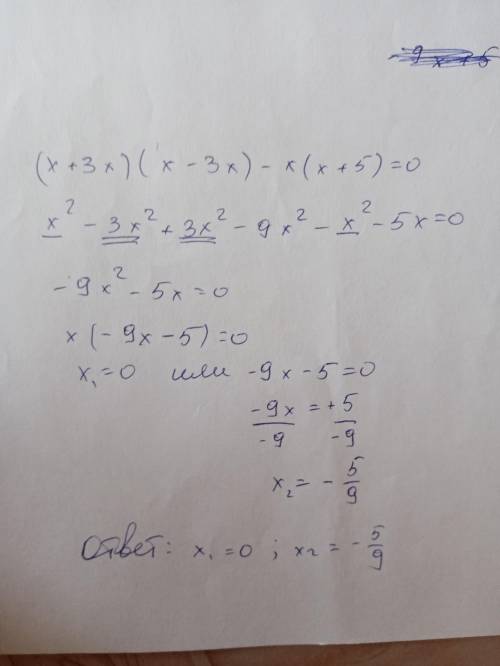 -9x+5
(x+3x)(x-3x)-x(x+5)=0
x²-3x²+3x²-9x²-x²-5x=0
-9x²-5x=0
x(-9x-5)=0
x₁=0 или -9x-5=0
-9x/-9=+5/-9
x₂=-5/9
Ответ: x₁=0; x₂=-5/9